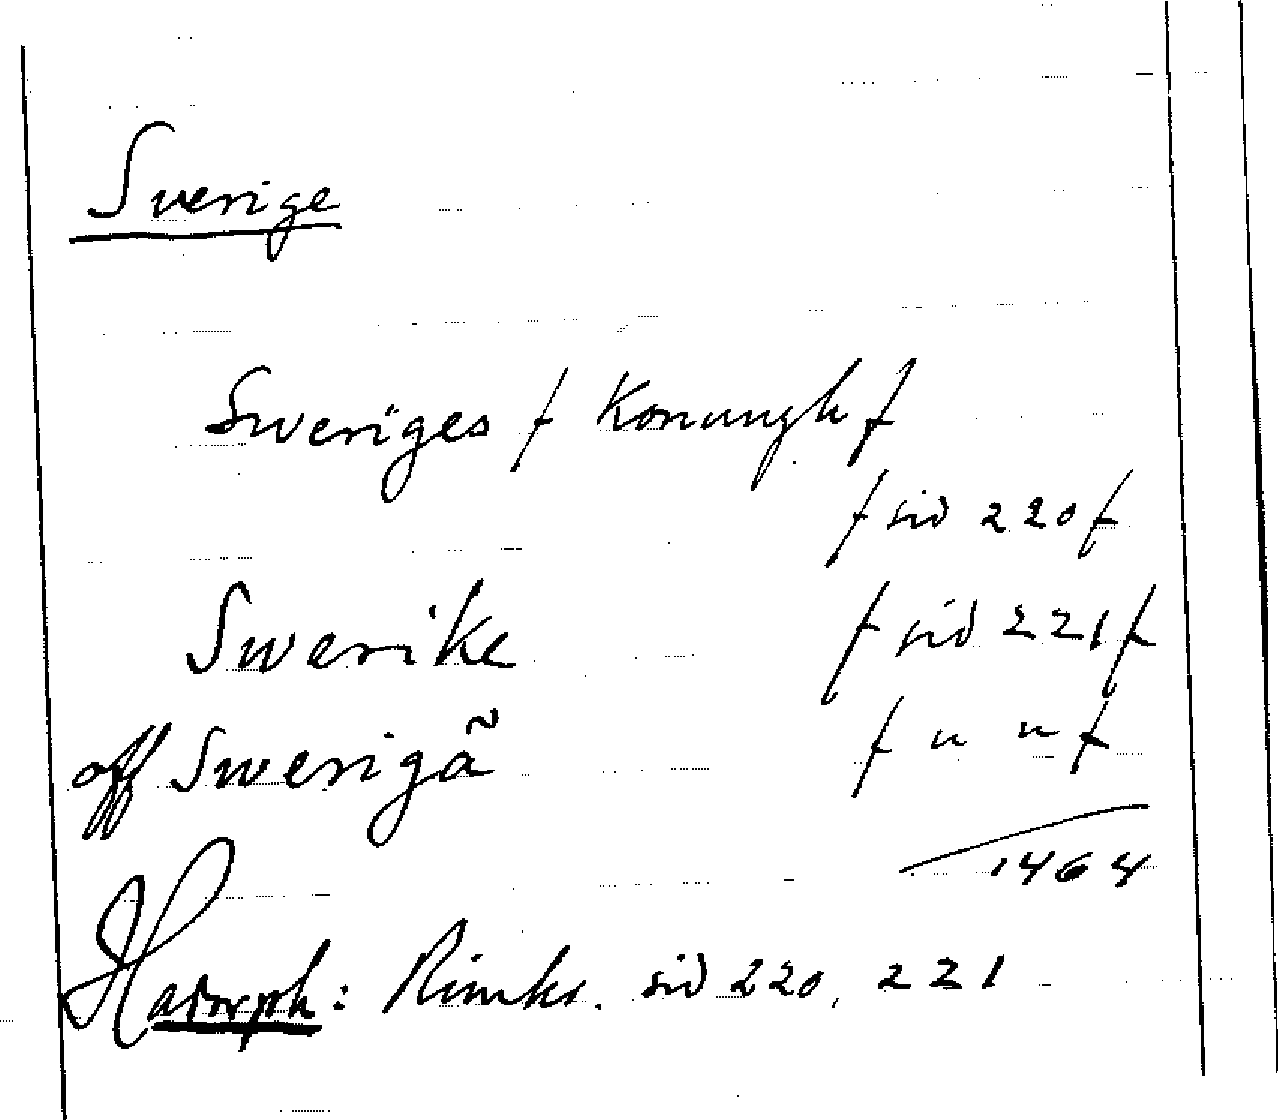 Sverige
Sweriges / Konungh /
/ sid 220 /
Swerike / sid 221 /
off Swerigã / " " /
1464
Hadorph: Rimkr. sid 220, 221